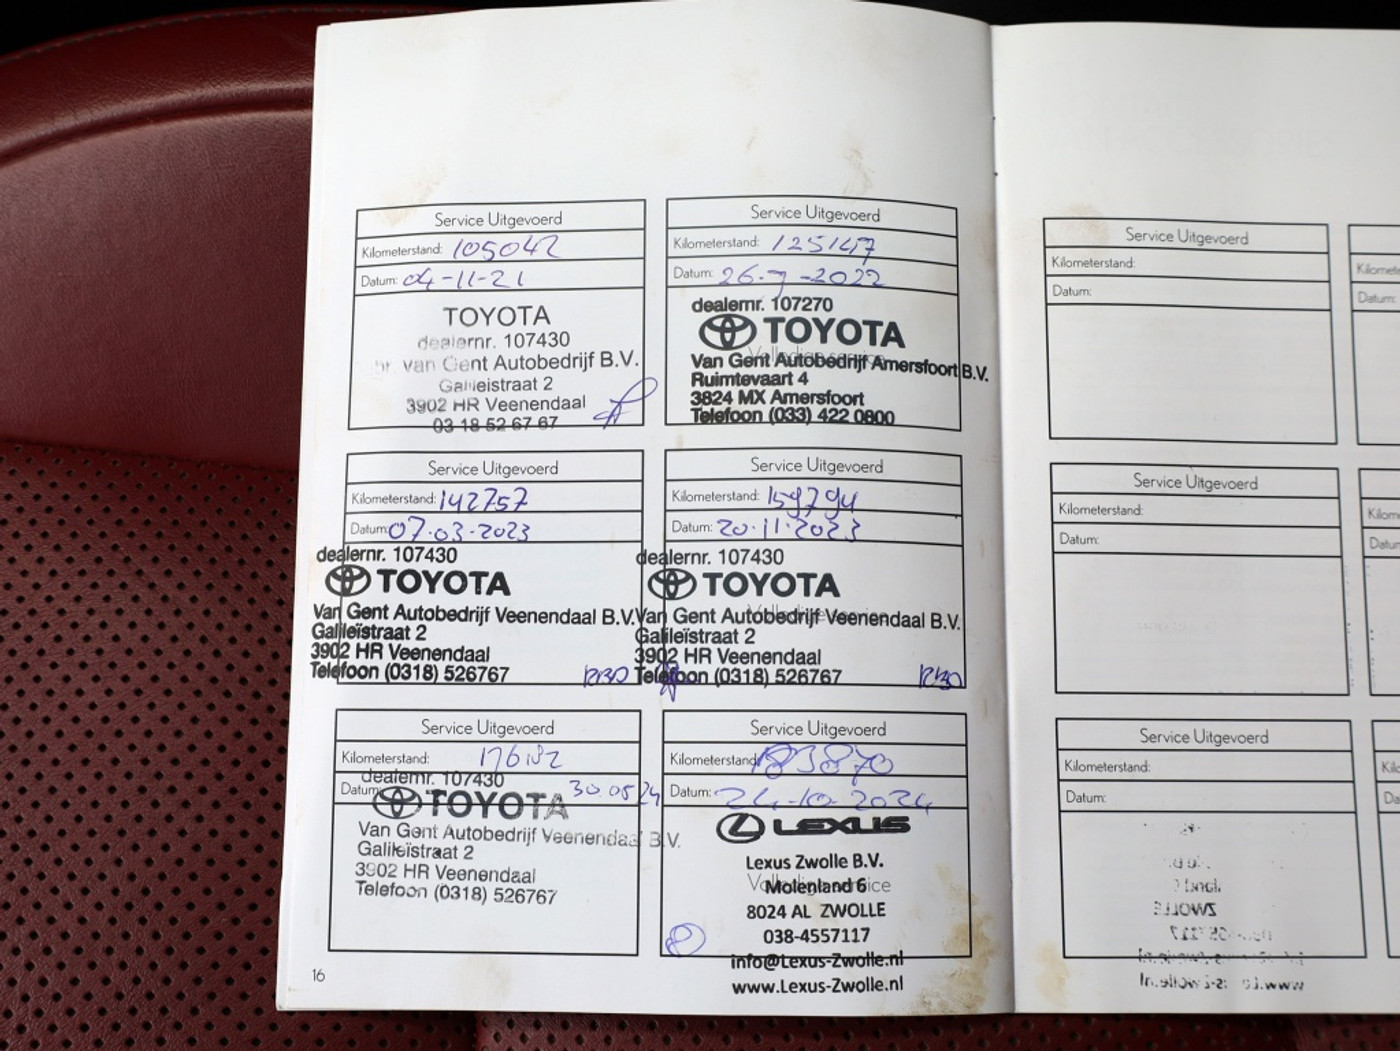 Service Uitgevoerd
Kilometerstand: 105042
Datum: 04-11-21
TOYOTA
dealernr. 107430
van Gent Autobedrijf B.V.
Galileistraat 2
3902 HR Veenendaal
03 18 52 67 67
Service Uitgevoerd
Kilometerstand: 125147
Datum: 26-7-2022
dealernr. 107270
TOYOTA
Volledige service
Van Gent Autobedrijf Amersfoort B.V.
Ruimtevaart 4
3824 MX Amersfoort
Telefoon (033) 422 0800
Service Uitgevoerd
Kilometerstand: 142757
Datum: 07-03-2023
dealernr. 107430
TOYOTA
Van Gent Autobedrijf Veenendaal B.V.
Galileïstraat 2
3902 HR Veenendaal
Telefoon (0318) 526767
Service Uitgevoerd
Kilometerstand: 159794
Datum: 20-11-2023
dealernr. 107430
TOYOTA
Volledige service
Van Gent Autobedrijf Veenendaal B.V.
Galileïstraat 2
3902 HR Veenendaal
Telefoon (0318) 526767
Service Uitgevoerd
Kilometerstand: 176182
Datum: 30.05.24
dealernr. 107430
TOYOTA
Van Gent Autobedrijf Veenendaal B.V.
Galileïstraat 2
3902 HR Veenendaal
Telefoon (0318) 526767
Service Uitgevoerd
Kilometerstand: 183870
Datum: 24-10-2024
LEXUS
Lexus Zwolle B.V.
Volledige service
Molenland 6
8024 AL ZWOLLE
038-4557117
info@Lexus-Zwolle.nl
www.Lexus-Zwolle.nl
16
Service Uitgevoerd
Kilometerstand:
Datum:
Service Uitgevoerd
Kilometerstand:
Datum:
Service Uitgevoerd
Kilometerstand:
Datum: